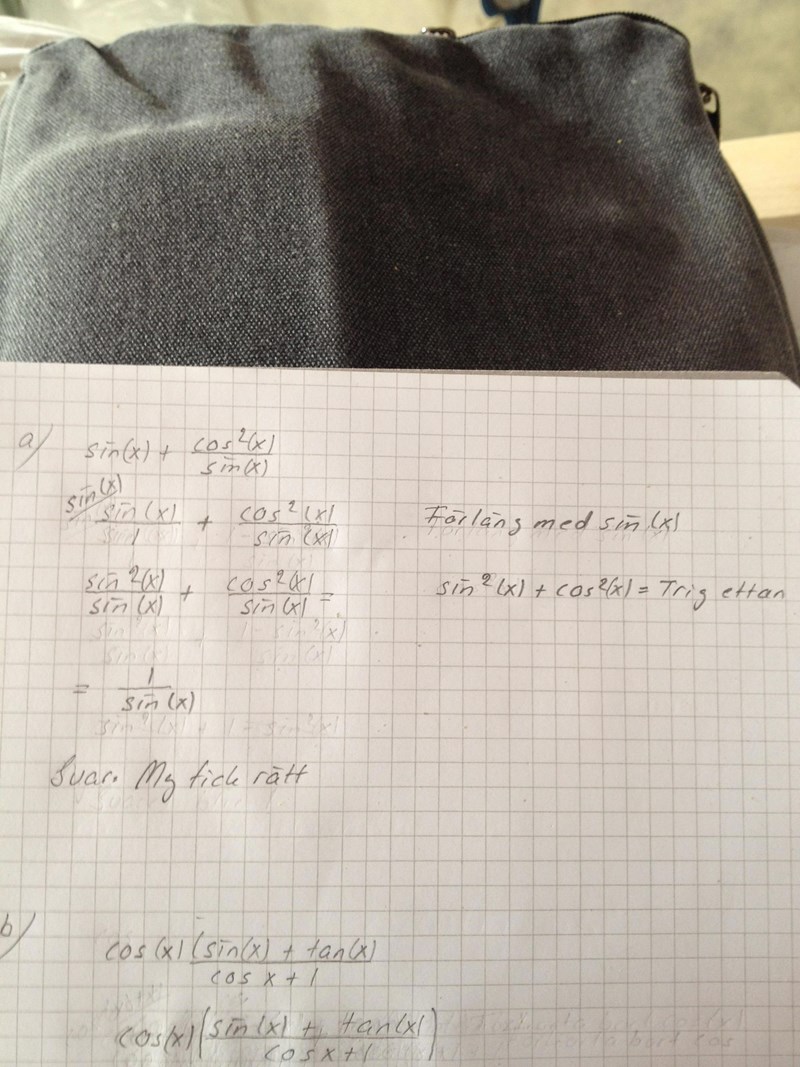 a) sin(x) + cos²(x)/sin(x)
sin(x)/ sin(x)/1 + cos²(x)/sin(x) Förläng med sin(x)
sin²(x)/sin(x) + cos²(x)/sin(x) = sin²(x) + cos²(x) = Trig ettan
= 1/sin(x)
Svar. My fick rätt
b) cos(x)(sin(x) + tan(x)/cos x + 1
cos(x)(sin(x) + tan(x)/cos x + 1)